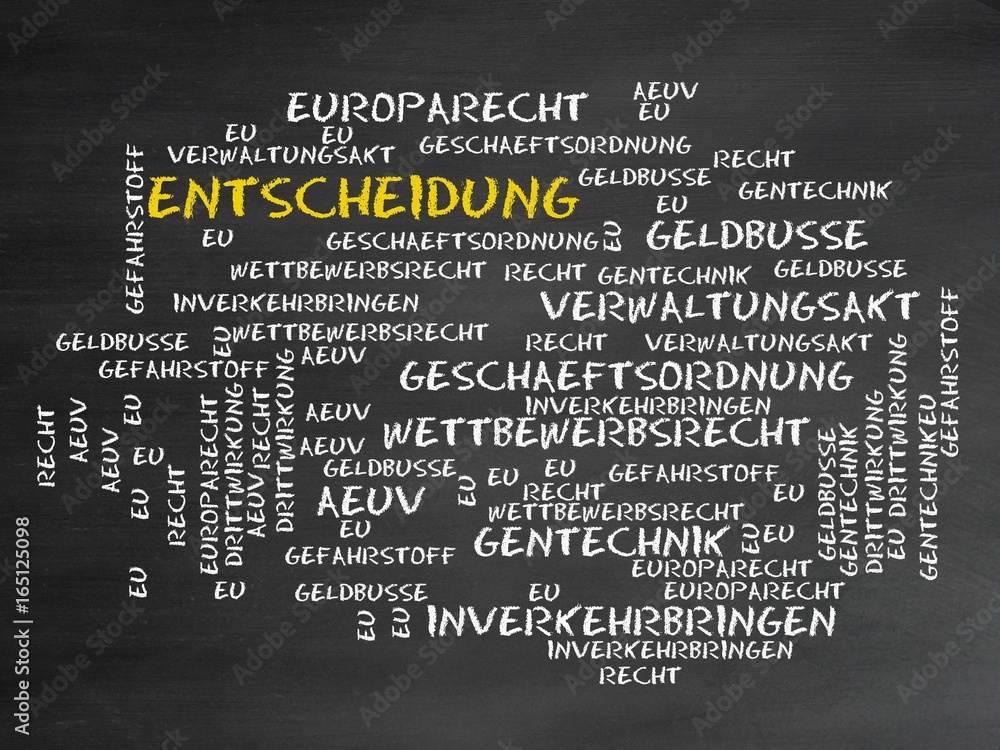 EUROPARECHT
AEUV
EU
EU
EU
VERWALTUNGSAKT
GESCHAEFTSORDNUNG
RECHT
GEFAHRSTOFF
ENTSCHEIDUNG
GELDBUSSE
GENTECHNIK
EU
EU
GESCHAEFTSORDNUNG
EU
GELDBUSSE
WETTBEWERBSRECHT
RECHT
GENTECHNIK
GELDBUSSE
INVERKEHRBRINGEN
VERWALTUNGSAKT
GEFAHRSTOFF
GELDBUSSE
EU
WETTBEWERBSRECHT
RECHT
VERWALTUNGSAKT
GEFAHRSTOFF
AEUV
GESCHAEFTSORDNUNG
INVERKEHRBRINGEN
RECHT
AEUV
AEUV
EU
EU
EU
EU
RECHT
EUROPARECHT
DRITTWIRKUNG
AEUV
RECHT
DRITTWIRKUNG
AEUV
AEUV
WETTBEWERBSRECHT
GELDBUSSE
EU
EU
EU
GEFAHRSTOFF
EU
GELDBUSSE
GENTECHNIK
DRITTWIRKUNG
EU
DRITTWIRKUNG
GENTECHNIK
EU
AEUV
RECHT
WETTBEWERBSRECHT
EU
GENTECHNIK
EU
EU
GEFAHRSTOFF
EUROPARECHT
EU
GELDBUSSE
EU
EUROPARECHT
EU
EU
INVERKEHRBRINGEN
INVERKEHRBRINGEN
RECHT
Adobe Stock | #165125098
Adobe Stock